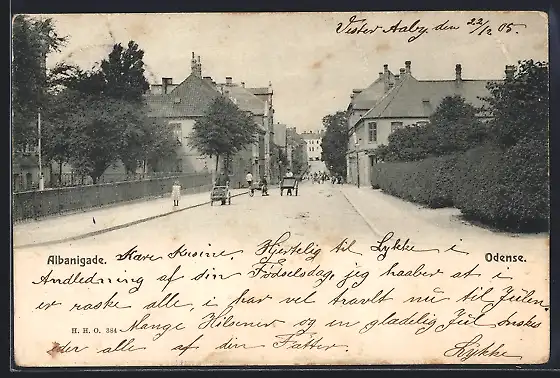 Vester Aaby den 22/12 05.
Albanigade. Kære Kusine. Hjertelig til Lykke i Odense.
Andledning af din Fødselsdag, jeg haaber at i
er raske alle, i har vel travlt nu til Julen.
H. H. O. 384 Mange Hilsener og en glædelig Jul ønskes
eder alle af din Fætter.
Lykke